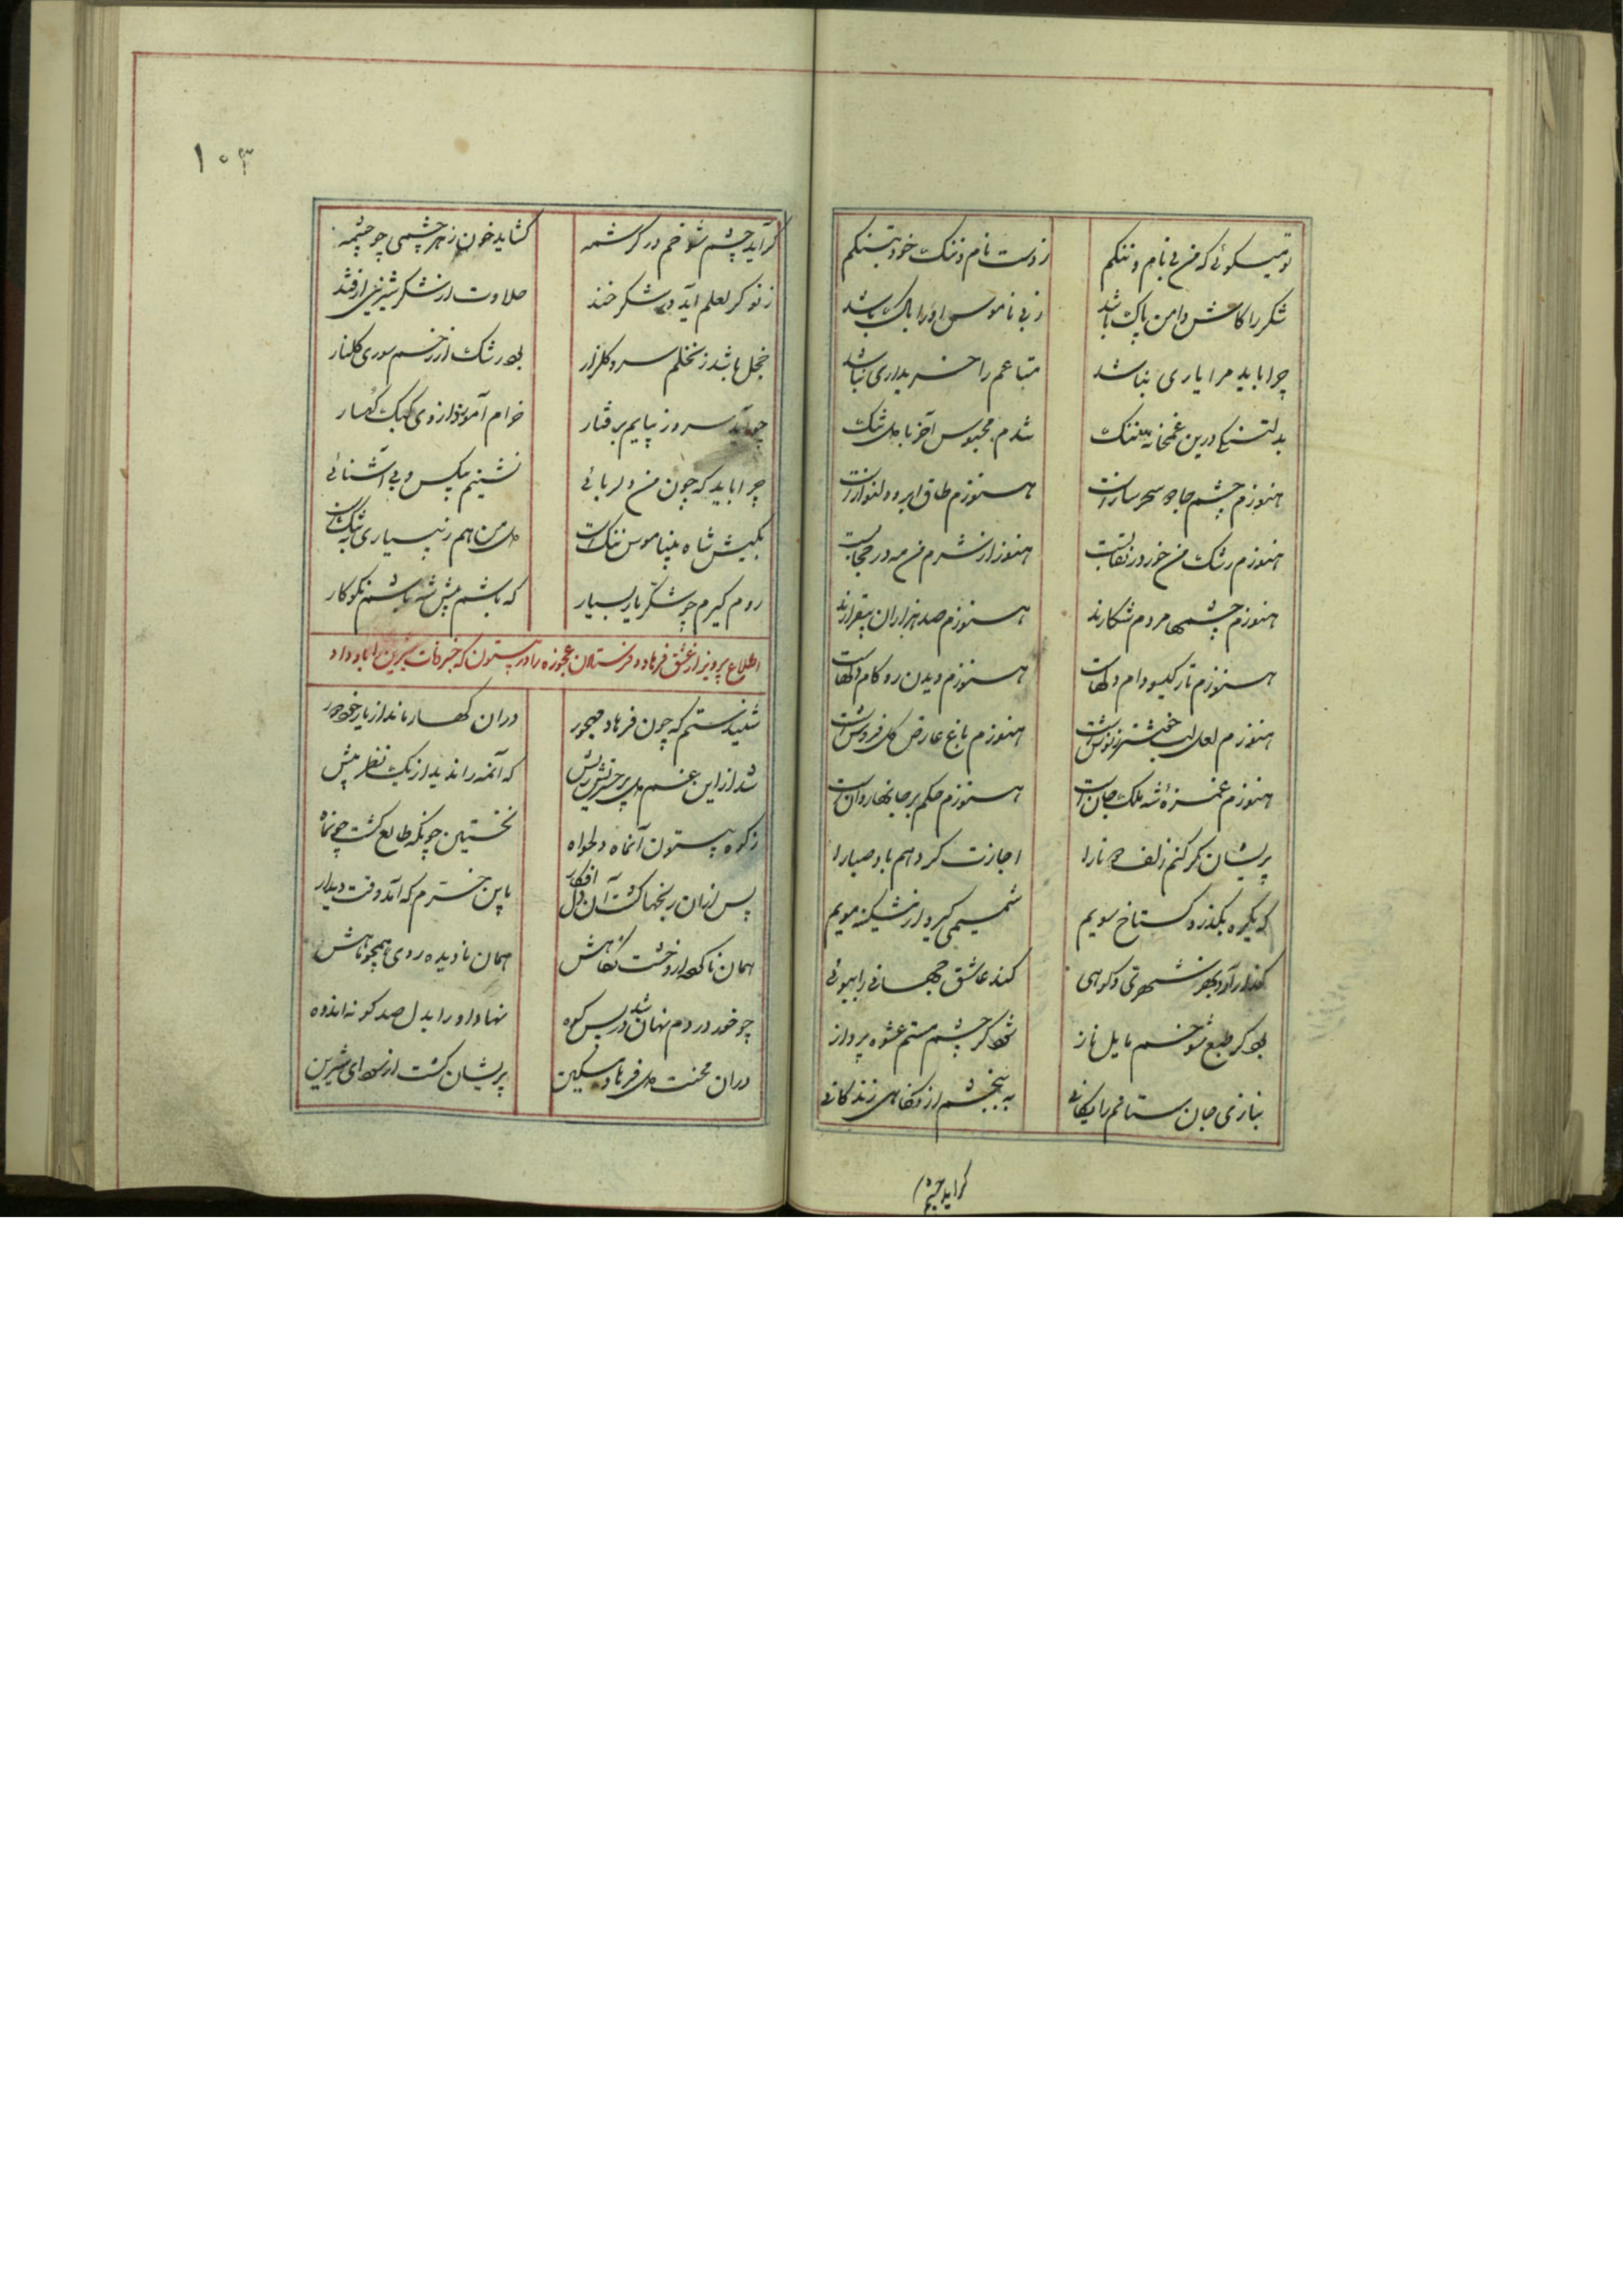 تو میکوئی که من بی نام و ننکم
ز دست نام و ننک خود بتنکم
شکر را کاش دامن پاک باشد
ز بی ناموس او را باک باشد
چرا باید مرا یاری نباشد
متاعم را خریداری نباشد
بدلتنکی درین غمخانه تنک
شدم محبوس آخر با دل تنک
هنوزم چشم جادو سحر سازست
هنوزم طاق ابرو دلنوازست
هنوزم رشک من خور در نقابست
هنوز از شرم من مه در حجابست
هنوزم چشمها مردم شکارند
هنوزم صد هزاران بیقرارند
هنوزم تار کیسو دام دلهاست
هنوزم دیدن رو کام دلهاست
هنوزم لعل لب
هنوزم باغ عارض کل فروش است
هنوزم غمزه شه ملک جان است
هنوزم حکم بر جانها روان است
پریشان کر کنم زلف دو تا را
اجازت کر دهم باد صبا را
که یکره بکذرد کستاخ سویم
شمیمی کیرد از مشکینه مویم
کذار آرد بهر شهری و کوهی
کند عاشق جهانی را ببوئی
بود کر طبع شوخم مایل ناز
شود کر چشم مستم عشوه پرداز
بنازی جان ستانم رایکانی
ببخشم از نکاهی زندکانی
کر آید چشم
۱۰۳
کر آید چشم شوخم در کرشمه
کشاید خون ز هر چشمی چو چشمه
ز نو کر لعلم آید در شکر خند
حلاوت از شکر شیرینی از قند
خجل باشد ز نخلم سرو کلزار
بود رشک از رخم سوری کلنار
چو آید سرو ز پایم برفتار
خرام آموزد از وی کبک کهسار
چرا باید که چون من دلربائی
نشینم بیکس و بی آشنائی
بکیش شاه بیناموس ننک است
دل من هم ز بسیاری به تنک است
روم کیرم چو شکر یار بسیار
که باشم پیش شه باشم نکوکار
اطلاع پرویز از عشق فرهاد و فرستادن عجوزه را در بیستون که خبر وفات شیرین را باو داد
شنیدستم که چون فرهاد مهجور
دران کهسار ماند از یار خود دور
شد از این غم دل پر حسرتش ریش
که آنمه را ندید از یک نظر بیش
ز کوه بیستون آنماه دلخواه
نخستین چونکه طالع کشت چو نماه
پس ازان رنجها کشت آن دل افکار
باین خرم که آمد وقت دیدار
همان ناکه ز رخشت نکاهش
همان نادیده روی همچو ماهش
چو خور در دم نهان شد در پس کوه
نهاد او را بدل صد کونه اندوه
دران محنت دل فرهاد مسکین
پریشان کشت از سودای شیرین